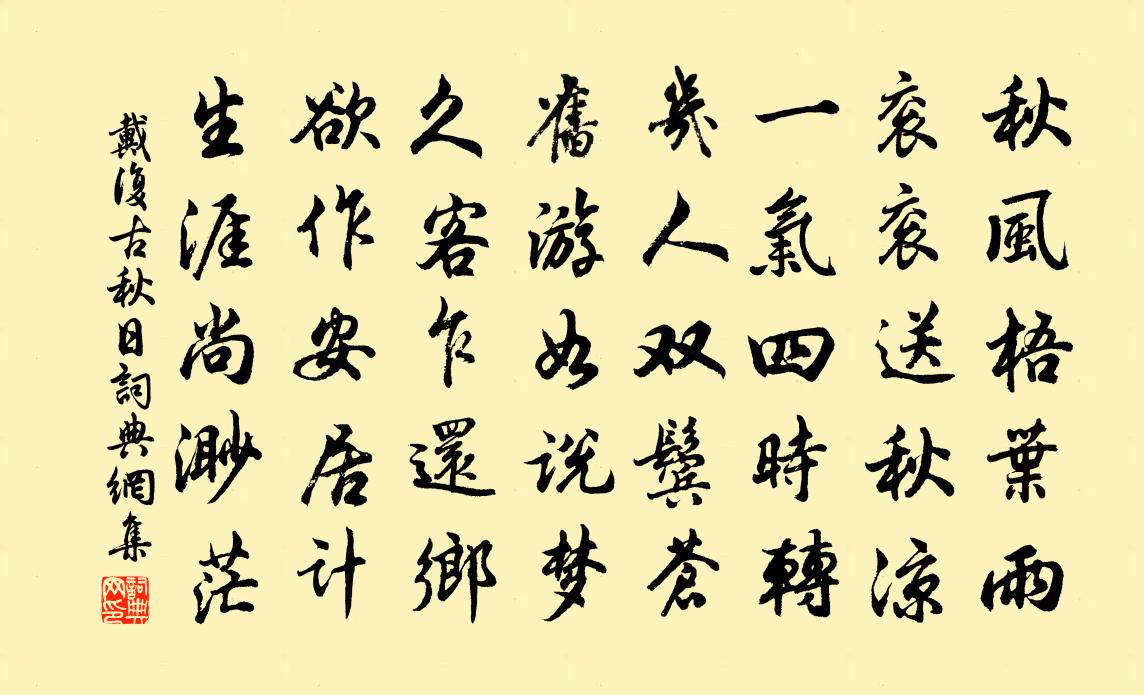 秋風梧葉雨
衮衮送秋涼
一氣四時轉
幾人双鬓蒼
舊游如说梦
久客乍還鄉
欲作安居计
生涯尚渺茫
戴復古秋日詞典網集
詞典网印